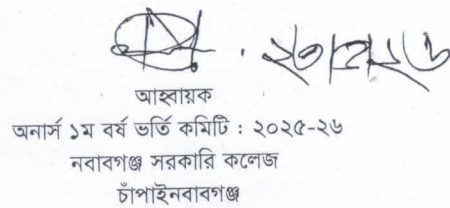 আহ্বায়ক
অনার্স ১ম বর্ষ ভর্তি কমিটি : ২০২৫-২৬
নবাবগঞ্জ সরকারি কলেজ
চাঁপাইনবাবগঞ্জ